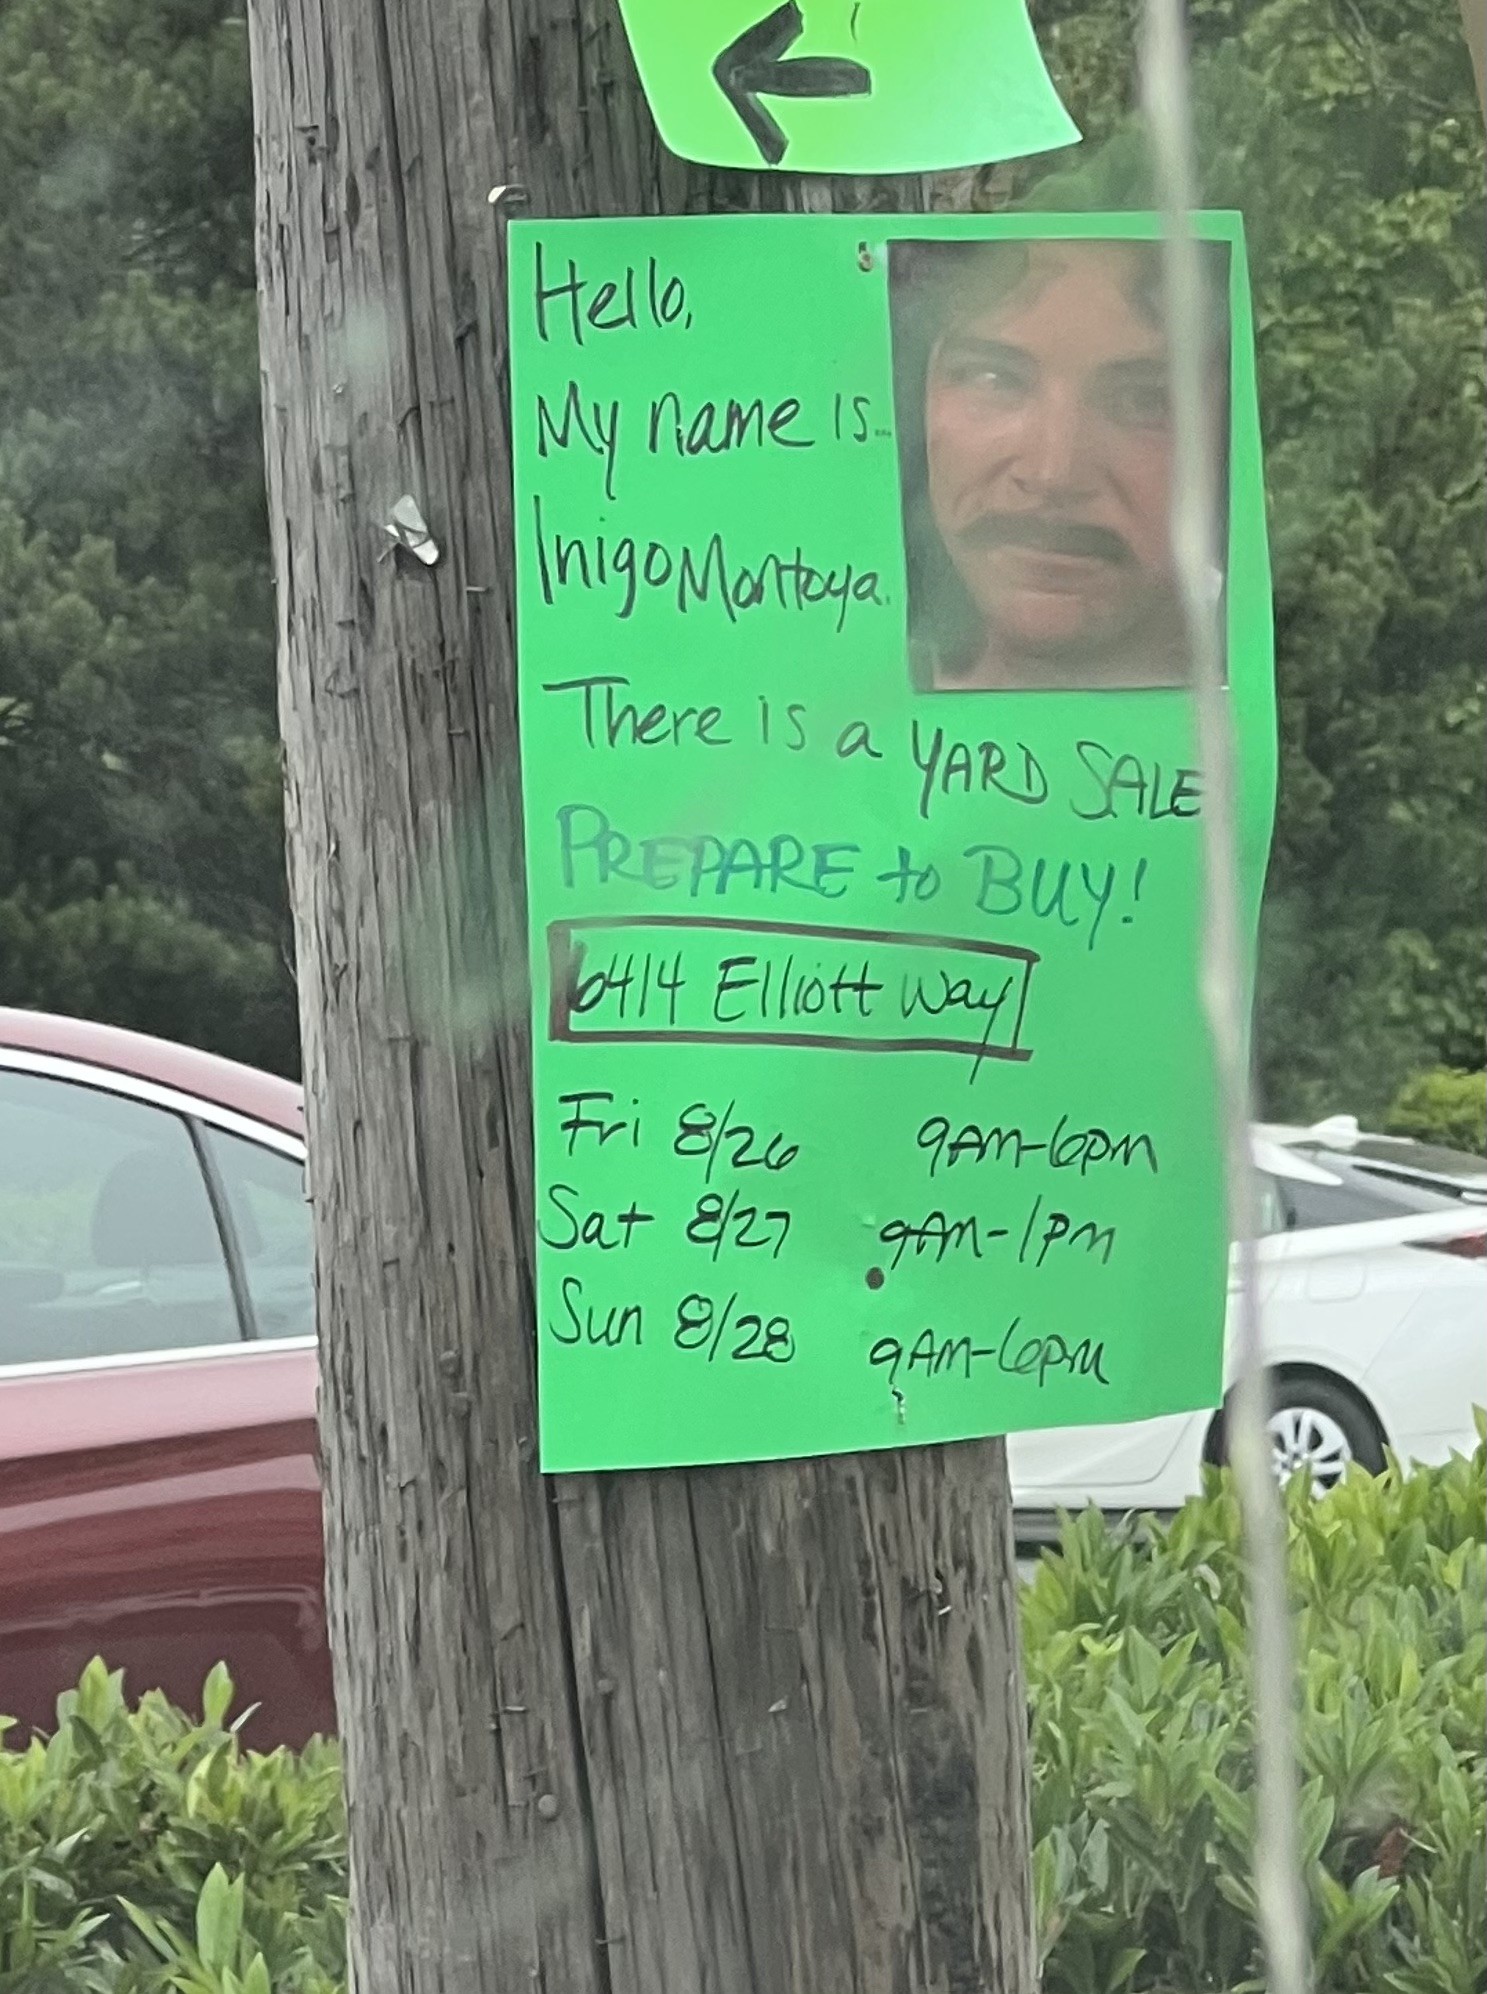 Hello,
My name is...
Inigo Montoya.
There is a YARD SALE
PREPARE to BUY!
6414 Elliott Way
Fri 8/26 9AM-6pm
Sat 8/27 9AM-1PM
Sun 8/28 9AM-6pm